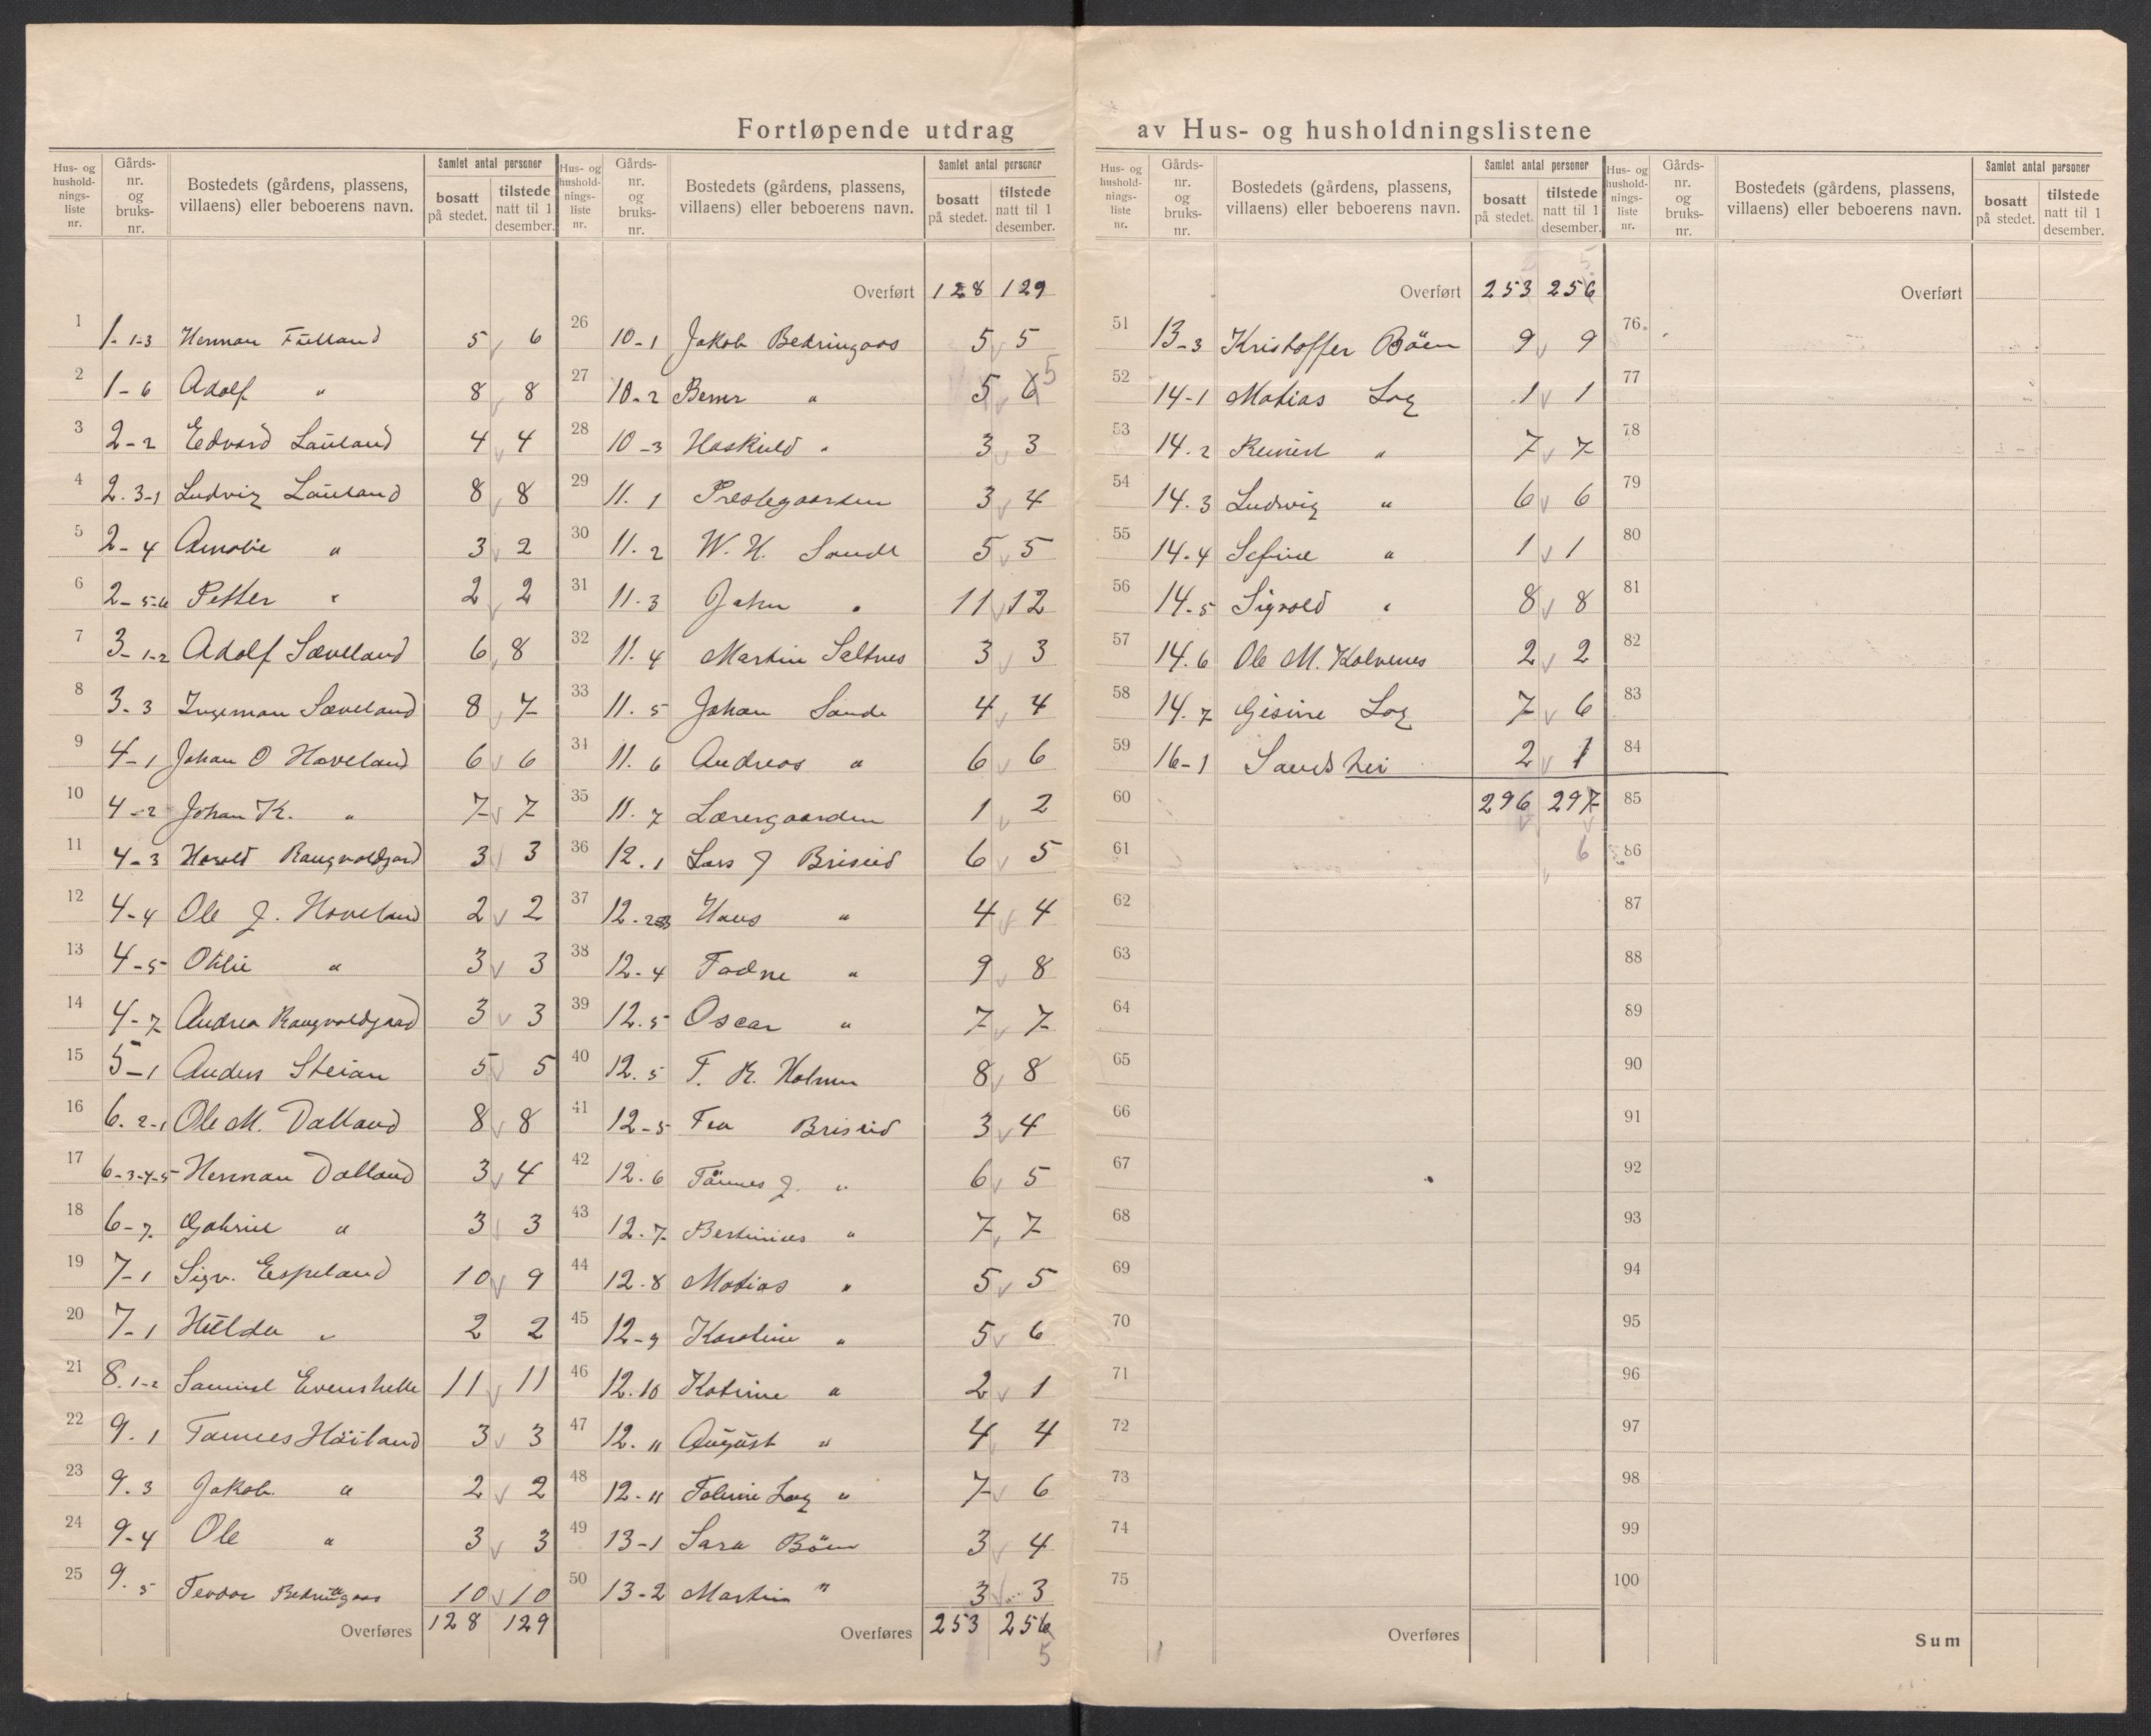 Fortløpende utdrag av Hus- og husholdningslistene
Hus- og hushold-nings-liste nr. | Gårds-nr. og bruks-nr. | Bostedets (gårdens, plassens, villaens) eller beboerens navn. | Samlet antal personer | bosatt på stedet. | tilstede natt til 1 desember.
1 | 1-1-3 | Herman | 5 | 6
2 | 1-6 | Adolf " | 8 | 8
3 | 2-2 | Edvard Lauland | 4 | 4
4 | 2.3-1 | Ludvig Lauland | 8 | 8
5 | 2-4 | Amalie " | 3 | 2
6 | 2-5-6 | Petter " | 2 | 2
7 | 3-1-2 | Adolf Sæveland | 6 | 8
8 | 3-3 | Ingeman Sæveland | 8 | 7
9 | 4-1 | Johan O Haveland | 6 | 6
10 | 4-2 | Johan K. " | 7 | 7
11 | 4-3 | Harald | 3 | 3
12 | 4-4 | Ole J. Haveland | 2 | 2
13 | 4-5 | Otilie " | 3 | 3
14 | 4-7 | Andrea | 3 | 3
15 | 5-1 | Anders Steian | 5 | 5
16 | 6.2-1 | Ole M. Dalland | 8 | 8
17 | 6-3-4-5 | Herman Dalland | 3 | 4
18 | 6-7 | Gabriel " | 3 | 3
19 | 7-1 | Sigv. Espeland | 10 | 9
20 | 7-1 | Hulda " | 2 | 2
21 | 8.1-2 | Samuel Evenshelle | 11 | 11
22 | 9.1 | Høiland | 3 | 3
23 | 9.3 | Jakob " | 2 | 2
24 | 9-4 | Ole " | 3 | 3
25 | 9.5 | Teodor Bedringaas | 10 | 10
Overføres | 128 | 129
Hus- og hushold-nings-liste nr. | Gårds-nr. og bruks-nr. | Bostedets (gårdens, plassens, villaens) eller beboerens navn. | Samlet antal personer | bosatt på stedet. | tilstede natt til 1 desember.
Overført | 128 | 129
26 | 10-1 | Jakob Bedringaas | 5 | 5
27 | 10-2 | Berner " | 5 | 6 5
28 | 10-3 | Haskuld " | 3 | 3
29 | 11.1 | Prestegaarden | 3 | 4
30 | 11.2 | W. H. Sande | 5 | 5
31 | 11.3 | John " | 11 | 12
32 | 11.4 | Martin Saltnes | 3 | 3
33 | 11.5 | Johan Sande | 4 | 4
34 | 11.6 | Andreas " | 6 | 6
35 | 11.7 | Lærergaarden | 1 | 2
36 | 12.1 | Lars J Briseid | 6 | 5
37 | 12.2-3 | Hans " | 4 | 4
38 | 12-4 | Tadne " | 9 | 8
39 | 12.5 | Oscar " | 7 | 7
40 | 12.5 | T. K. Holmen | 8 | 8
41 | 12-5 | Tea Briseid | 3 | 4
42 | 12.6 | Tønnes J. " | 6 | 5
43 | 12.7 | Bertinius " | 7 | 7
44 | 12.8 | Matias " | 5 | 5
45 | 12-9 | Karoline " | 5 | 6
46 | 12.10 | Katrine " | 2 | 1
47 | 12.11 | August " | 4 | 4
48 | 12-11 | Log " | 7 | 6
49 | 13-1 | Sara Bøen | 3 | 4
50 | 13-2 | Martin " | 3 | 3
Overføres | 253 | 256
5
Hus- og hushold-nings-liste nr. | Gårds-nr. og bruks-nr. | Bostedets (gårdens, plassens, villaens) eller beboerens navn. | Samlet antal personer | bosatt på stedet. | tilstede natt til 1 desember.
5
Overført | 253 | 256
51 | 13-3 | Kristoffer Bøen | 9 | 9
52 | 14-1 | Matias Log | 1 | 1
53 | 14.2 | Reinert " | 7 | 7
54 | 14.3 | Ludwig " | 6 | 6
55 | 14.4 | Sefine " | 1 | 1
56 | 14-5 | Sigvald " | 8 | 8
57 | 14.6 | Ole M. Kalvenes | 2 | 2
58 | 14.7 | Gisine Log | 7 | 6
59 | 16-1 | Sandshei | 2 | 1
60 | 296 | 297
61 | 6
62
63
64
65
66
67
68
69
70
71
72
73
74
75
Overføres
Hus- og hushold-nings-liste nr. | Gårds-nr. og bruks-nr. | Bostedets (gårdens, plassens, villaens) eller beboerens navn. | Samlet antal personer | bosatt på stedet. | tilstede natt til 1 desember.
Overført
76
77
78
79
80
81
82
83
84
85
86
87
88
89
90
91
92
93
94
95
96
97
98
99
100
Sum